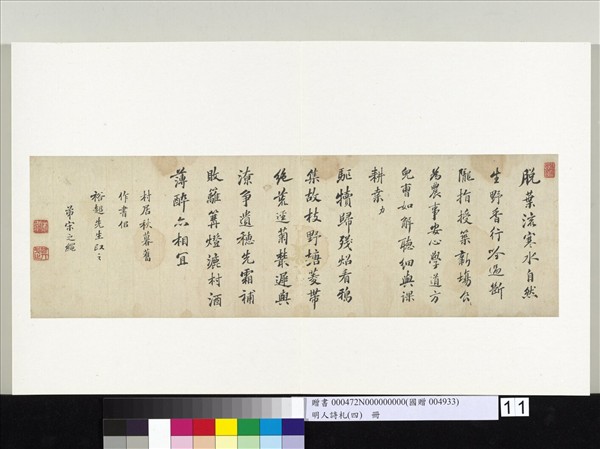 脫葉流寒水自然
生野香行吟過斷
隴指授築新場公
為農事安心學道方
兒曹如解聽細與課
耕桑
驅犢歸殘照看鴉
集故枝野塘菱帶
絕荒逕菊叢遲與
潦爭遺穗先霜補
敗籬篝燈漉村酒
薄醉亦相宜
村居秋暮舊
作書似
裕超先生
弟宋之繩
贈書 000472N000000000(國贈 004933)
明人詩札(四) 冊
11